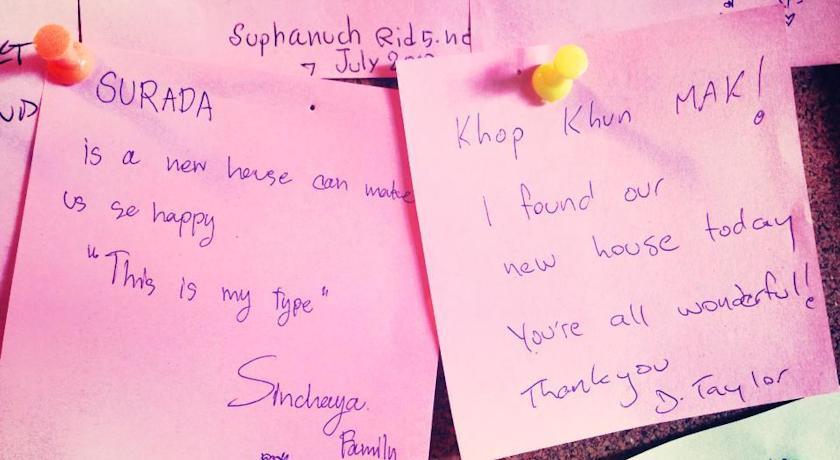 Suphanuch
July
SURADA
is a new house can make
us so happy
"This is my type"
Sinchaya
Family
Khop Khun MAK!
I found our
new house today
You're all wonderful!
Thank you
D. Taylor